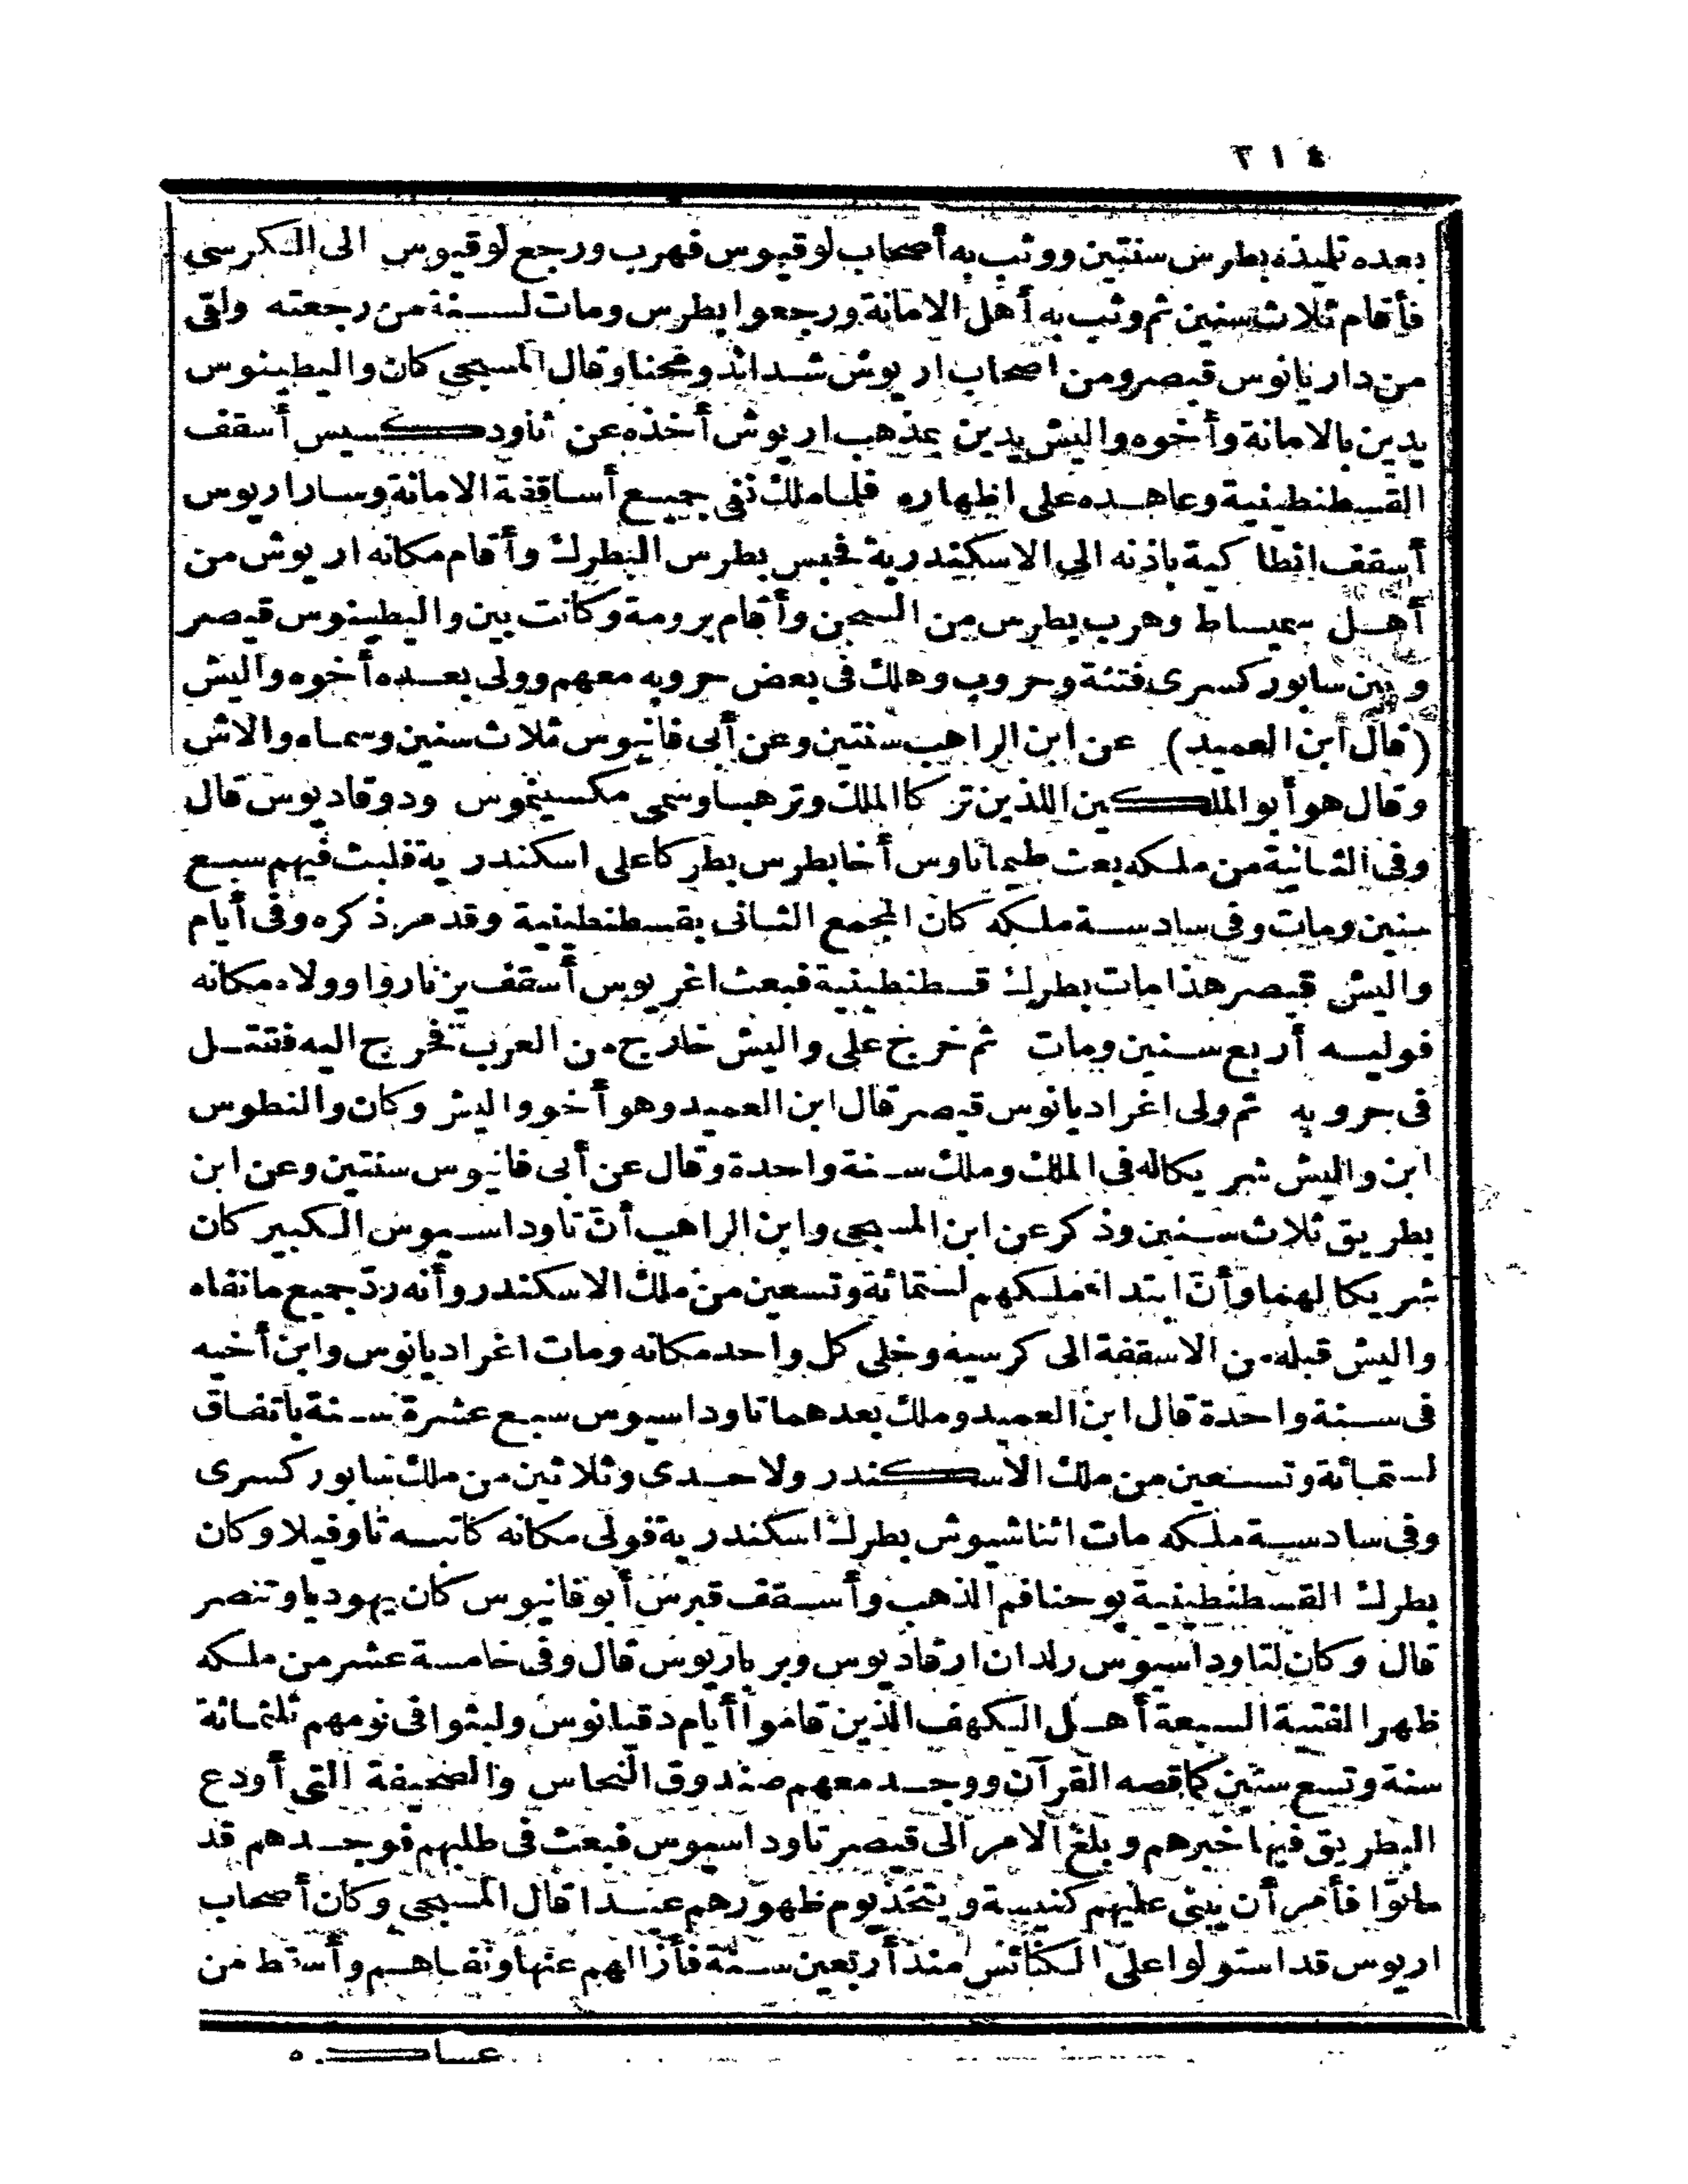 ٢١٤
بعده تلميذه بطرس سنتين ووثب به أصحاب لوقيوس فهرب ورجع لوقيوس الى الكرسى
فأقام ثلاث سنين ثم وثب به أهل الامانة ورجعوا بطرس ومات لسنة من رجعته ولقى
من داريانوس قيصر ومن اصحاب اريوش شدائد ومحنا وقال المسبحى كان واليطينوس
يدين بالامانة وأخوه واليش يدين بمذهب اريوش أخذه عن ثاودكسيس أسقف
القسطنطينية وعاهده على اظهاره فلما ملك نفى جميع أساقفة الامانة وسار اريوس
أسقف انطاكية باذنه الى الاسكندرية فحبس بطرس البطرك وأقام مكانه اريوش من
أهل سميساط وهرب بطرس من السجن وأقام برومة وكانت بين واليطينوس قيصر
وبين سابور كسرى فتنة وحروب وهلك فى بعض حروبه معهم وولى بعده أخوه واليش
(قال ابن العميد) عن ابن الراهب سنتين وعن أبى فانيوس ثلاث سنين وسماه والاش
وقال هو أبو الملكين اللذين تركا الملك وترهبا وسمى مكسينموس ودوقاديوس قال
وفى الثانية من ملكه بعث طيماناوس أخا بطرس بطركا على اسكندرية فلبث فيهم سبع
سنين ومات وفى سادسة ملكه كان المجمع الثانى بقسطنطينية وقد مر ذكره وفى أيام
واليش قيصر هذا مات بطرك قسطنطينية فبعث اغريوس أسقف يزناروا وولاه مكانه
فوليه أربع سنين ومات ثم خرج على واليش خارج من العرب فخرج اليه فقتل
فى حروبه ثم ولى اغراديانوس قيصر قال ابن العميد وهو أخو واليش وكان والنطوس
ابن واليش شريكا له فى الملك وملك سنة واحدة وقال عن أبى فانيوس سنتين وعن ابن
بطريق ثلاث سنين وذكر عن ابن المسبحى وابن الراهب أنّ تاوداسيوس الكبير كان
شريكا لهما وأنّ ابتداء ملكهم لستمائة وتسعين من ملك الاسكندر وأنه ردّ جميع مانفاه
واليش قبله من الاسقفة الى كرسيه وخلى كل واحد مكانه ومات اغراديانوس وابن أخيه
فى سنة واحدة قال ابن العميد وملك بعدهما تاوداسيوس سبع عشرة سنة باتفاق
لستمائة وتسعين من ملك الاسكندر ولاحدى وثلاثين من ملك سابور كسرى
وفى سادسة ملكه مات اثناشيوش بطرك اسكندرية فولى مكانه كاتبه تاوفيلا وكان
بطرك القسطنطينية يوحنا فم الذهب وأسقف قبرس أبو فانيوس كان يهوديا وتنصر
قال وكان لتاوداسيوس ولدان ارقاديوس وبرباريوس قال وفى خامسة عشر من ملكه
ظهر الفتية السبعة أهل الكهف الذين قاموا أيام دقيانوس ولبثوا فى نومهم ثلثمائة
سنة وتسع سنين كما قصه القرآن ووجد معهم صندوق النحاس والصحيفة التى أودع
البطريق فيها خبرهم وبلغ الامر الى قيصر تاوداسيوس فبعث فى طلبهم فوجدهم قد
ماتوا فأمر أن يبنى عليهم كنيسة ويتخذ يوم ظهورهم عيدا قال المسبحى وكان أصحاب
اريوس قد استولوا على الكنائس منذ أربعين سنة فأزالهم عنها ونفاهم وأسقط من
عساكره